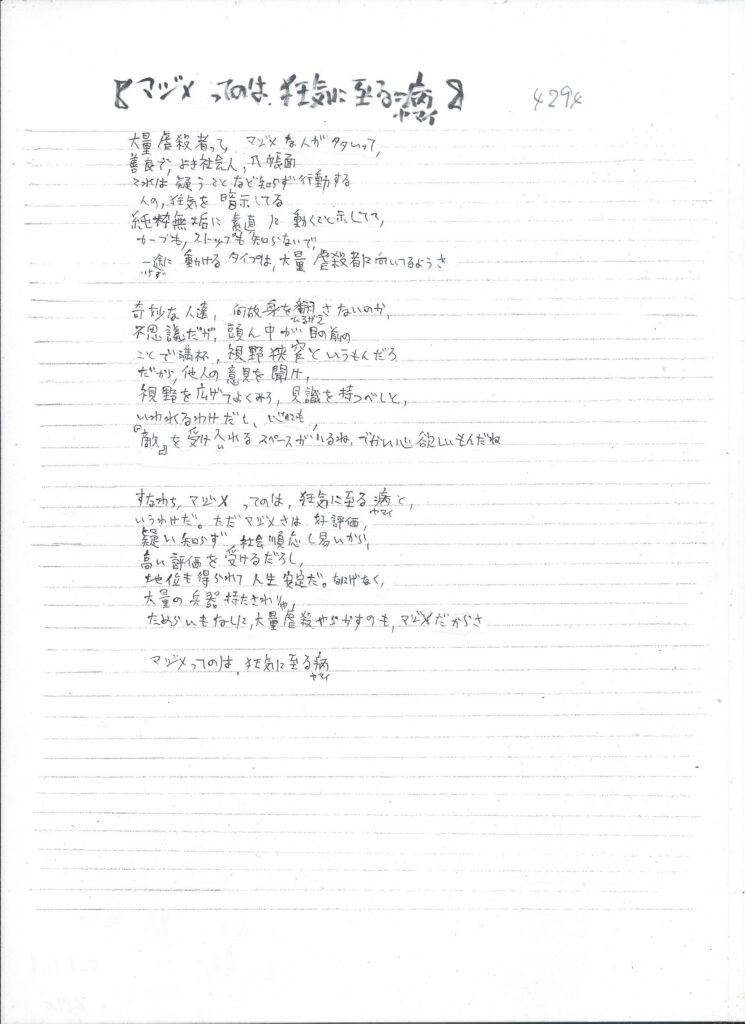 【マジメってのは、狂気に至る病】 4294
ヤマイ
大量虐殺者って、マジメな人が多いって、
善良で、よき社会人、几帳面
それは疑うことなど知らず行動する
人の、狂気を暗示してる
純粋無垢に素直に動くこと示してて、
カーブも、ストップも知らないで、
一途に動けるタイプは、大量虐殺者に向いてるようさ
いちず
奇妙な人達、何故身を翻さないのか、
ひるがえ
不思議だが、頭ん中が目の前の
ことで満杯、視野狭窄というもんだろ
だから、他人の意見を聞け、
視野を広げてよくみろ、見識を持つべしと、
いわれるわけだし、
『敵』を受け入れるスペースがいるね、でかい心欲しいもんだね
すなわち、マジメってのは、狂気に至る病と、
ヤマイ
いうわけだ。ただマジメさは、好評価、
疑い知らず、社会順応し易いから、
高い評価を受けるだろし、
地位も得られて人生安定だ。なにげなく、
大量の兵器持たされりゃ、
ためらいもなしに、大量虐殺やらかすのも、マジメだからさ
マジメってのは、狂気に至る病
ヤマイ